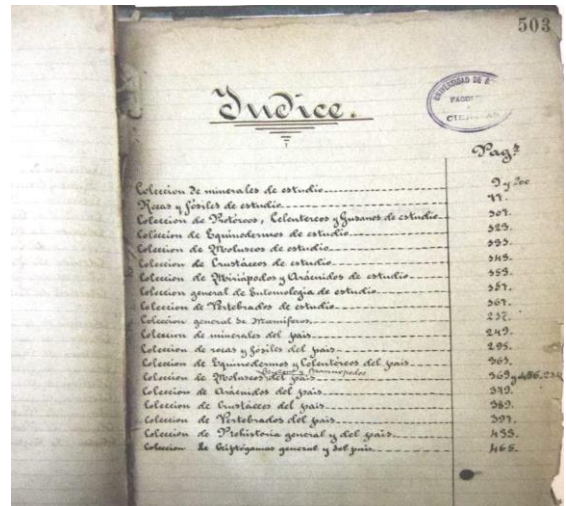 503
UNIVERSIDAD DE
FACUL
CIENCIAS
Indice.
Pag.s
Coleccion de minerales de estudio 9 y 200
Rocas y fósiles de estudio
Coleccion de Protozoos, Celentereos y Gusanos de estudio 307.
Coleccion de Equinodermos de estudio 323.
Coleccion de Moluscos de estudio
Coleccion de Crustáceos de estudio
Coleccion de Miriápodos y Arácnidos de estudio
Coleccion general de Entomologia de estudio
Coleccion de Vertebrados de estudio 367.
Coleccion general de Mamiferos 237.
Coleccion de minerales del pais 249.
Coleccion de rocas y fósiles del pais 295.
Coleccion de Equinodermos y Celentéreos del pais 363.
Coleccion de Moluscos del pais 369
Coleccion de Arácnidos del pais 379.
Coleccion de Crustáceos del pais 389.
Coleccion de Vertebrados del pais 397.
Coleccion de Prehistoria general y del pais 455.
Coleccion de Criptógamas general y del pais 465.